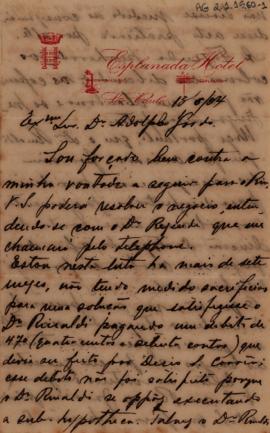 AG 2.2.1560-1
Esplanada Hotel
São Paulo 15/8/24
Exmo Snr. Dr. Adolpho Gordo
Sou forçado bem contra a
minha vontade a seguir para o Rio
V. S. poderá resolver o negocio, enten
dendo-se com o Dr. Rezende que me
chamará pelo telephone.
Estou nesta luta ha mais de sete
mezes, não tendo medido sacrificios
para uma solução que satisfizesse o
Dr. Rinaldi pagando um debito de
470 (quatro centos e setenta contos) que
devia ser feito por Decio S.
esse debito não foi satisfeito porque
o Dr. Rinaldi se oppoz executando
a sub-hypotheca. Talvez o Dr. Rinaldi